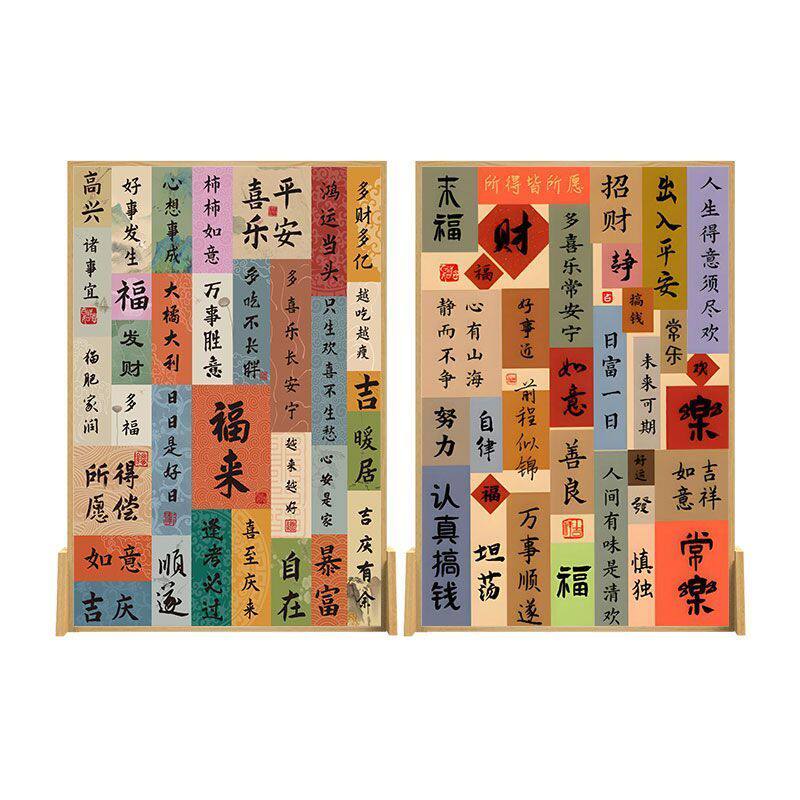 高兴
好事发生
心想事成
柿柿如意
平安
喜乐
鸿运当头
多财多亿
诸事宜
福
大橘大利
万事胜意
多吃不长胖
多喜乐长安宁
只生欢喜不生愁
越吃越瘦
发财
猫肥家润
多福
日日是好日
福来
吉
暖居
越来越好
心安是家
得偿
所愿
如意
吉庆
顺遂
逢考必过
喜至庆来
自在
暴富
吉庆有余
来福
所得皆所愿
财
福
多喜乐常安宁
招财
静
出入平安
人生得意须尽欢
搞钱
心有山海
静而不争
好事近
如意
日富一日
常乐
未来可期
欢
樂
前程似锦
努力
自律
善良
好运
吉祥
如意
福
认真搞钱
坦荡
万事顺遂
福
人间有味是清欢
發
慎独
常樂